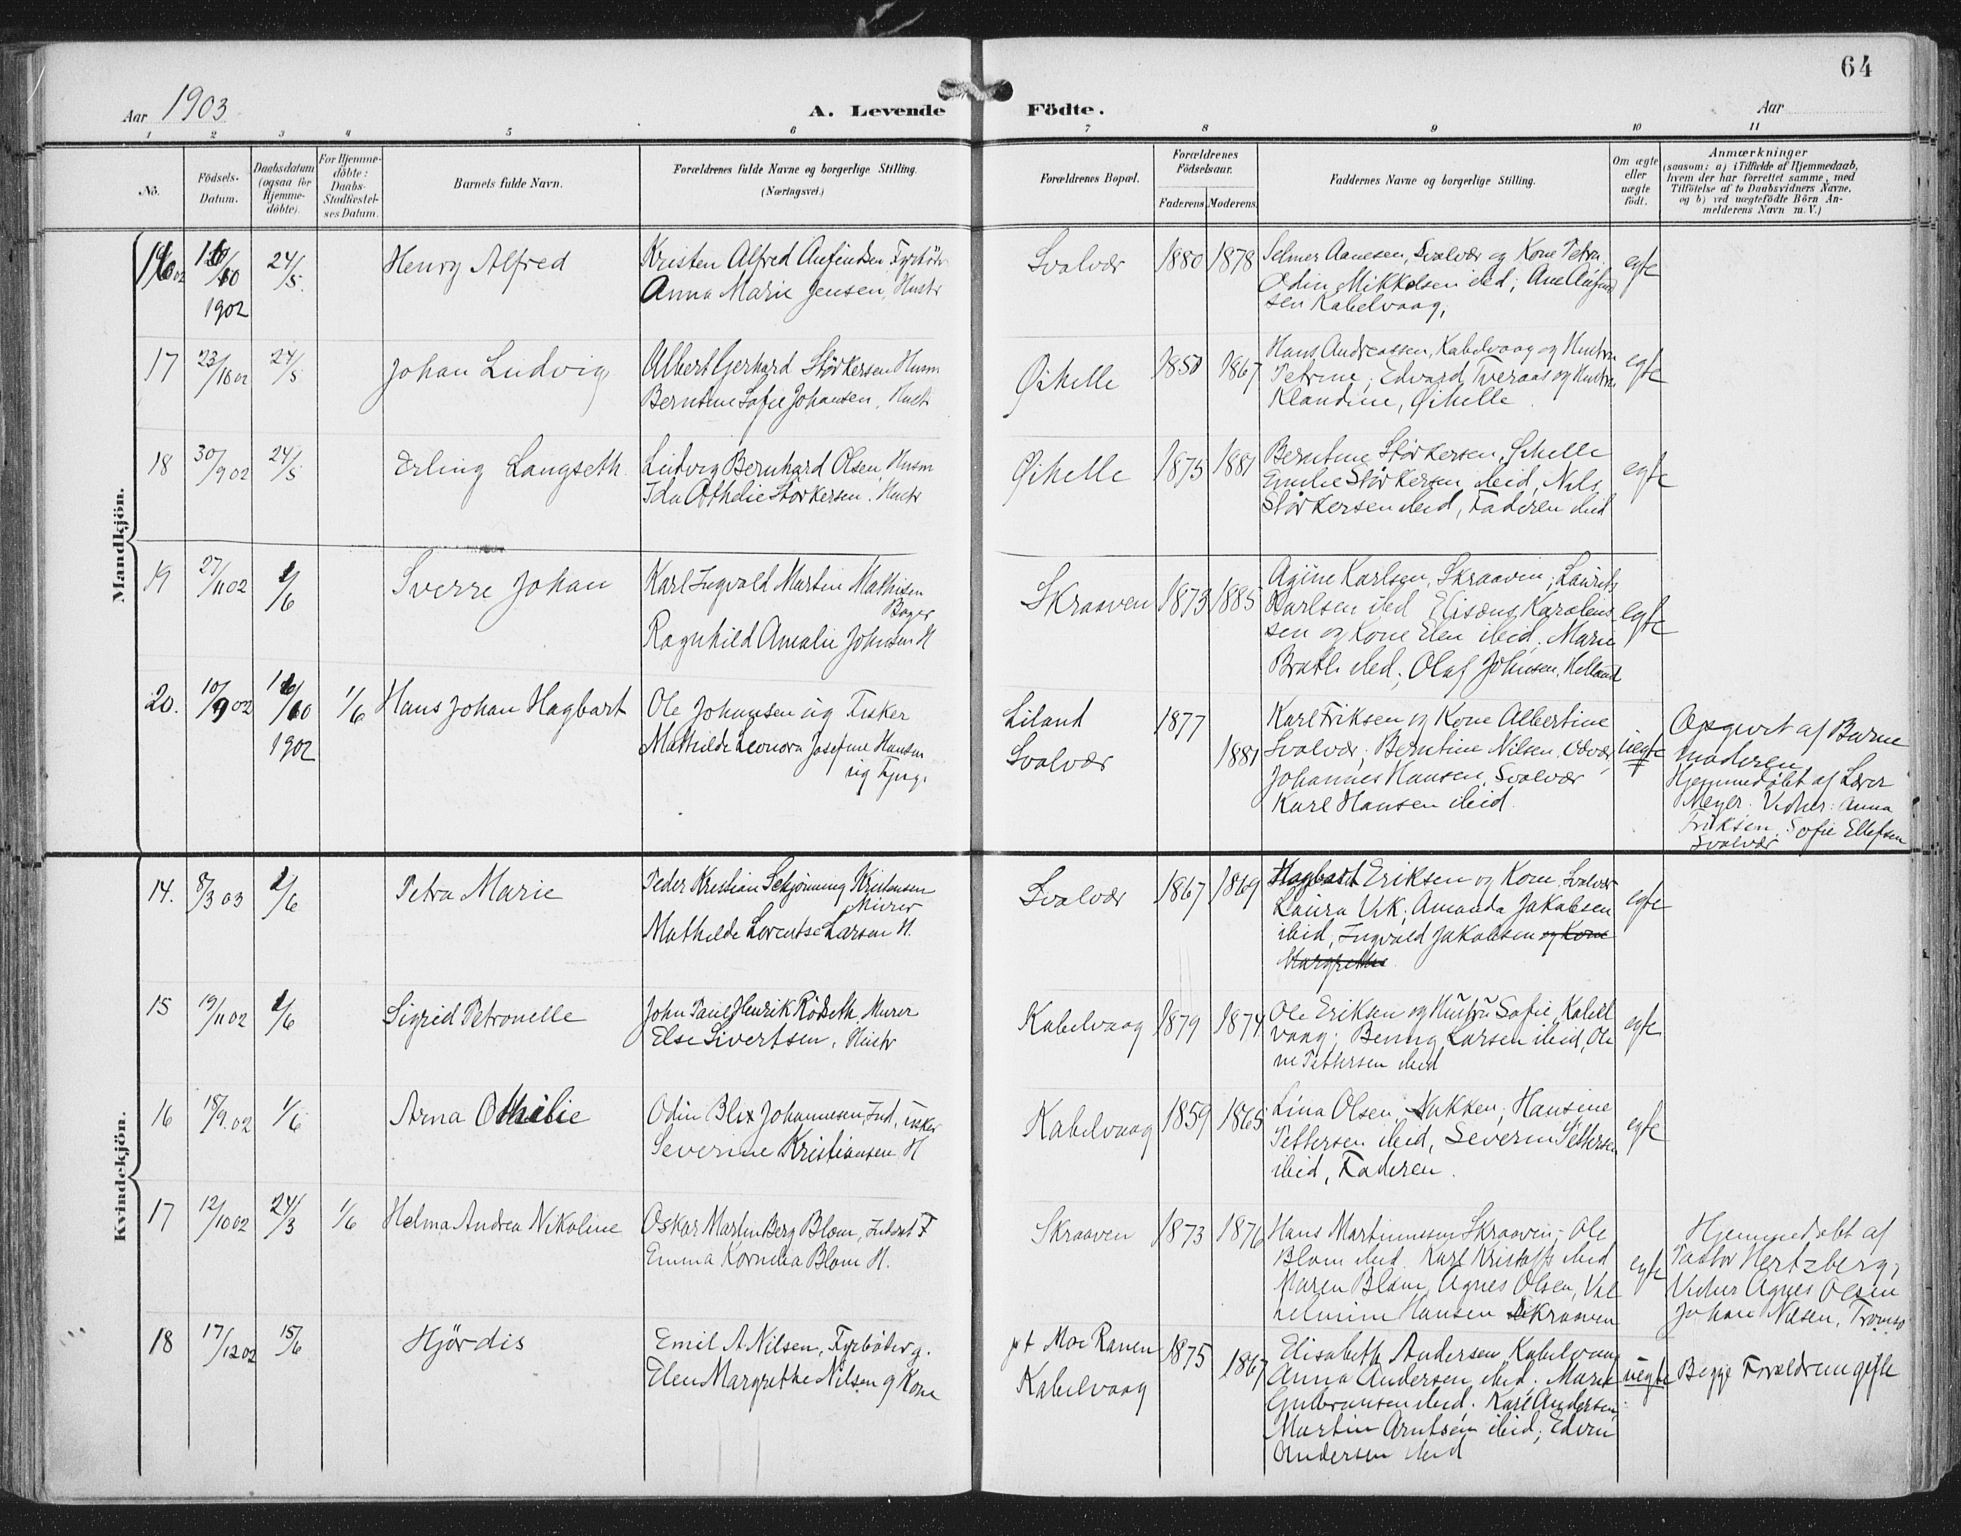 64
Aar 1903
A. Levende Födte.
Aar
1 2 3 4 5 6 7 8 9 10 11
No.
Födsels-Datum.
Daabsdatum (ogsaa for Hjemme-döbte).
For Hjemme-döbte: Daabs-Stadfæstel-ses Datum.
Barnets fulde Navn.
Forældrenes fulde Navne og borgerlige Stilling. (Næringsvei.)
Forældrenes Bopæl.
Forældrenes Födselsaar.
Faderens. Moderens.
Faddernes Navne og borgerlige Stilling.
Om ægte eller uægte födt.
Anmærkninger
(saasom: a) i Tilfælde af Hjemmedaab, hvem der har forrettet samme, med Tilföielse af to Daabsvidners Navne, og b) ved uægtefödte Börn Anmelderens Navn m. V.)
Mandkjön.
16 1902 24/5 Henry Alfred
Kristen Alfred Aufindsen Fyrbøt
Anna Marie Jensen, Hustr
Svolvær 1880 1878
Selmer Aanesen, Svolvær og Kone Petra
Odin Mikkelsen ibid; Ane Aufind
sen Kabelvaag,
egte
17 23/10 02 24/5 Johan Ludvig
Albert Gerhard Størkersen Husm
Berntine Sofie Johansen, Hustr
Øihelle 1850 1867
Hans Andreassen, Kabelvaag og Hustru
Petrine; Edvard Tveraas og Hustru
Klaudine, Øihelle.
egte
18 30/9 02 24/5 Erling Langseth
Ludvig Bernhard Olsen, Husm
Ida Othelie Størkersen, Hustr
Øihelle 1875 1881
Berntine Størkersen, Øihelle
Emilie Størkersen ibid, Nils
Størkersen ibid, Faderen ibid
egte
19 27/11 02 1/6 Sverre Johan
Karl Ingvald Martin Mathisen
Bager
Ragnhild Amalie Johnsen H
Skraaven 1873 1885
Agine Karlsen, Skraaven; Laurits
Karlsen ibid Elisæus Karolius
sen og Kone Elen ibid. Marie
ibid; Olaf Johnsen, Helland
egte
20. 10/9 02 1902 1/6 Hans Johan Hagbart
Ole Johansen ug Fisker
Mathilde Leonora Josefine Hansen
ug Tjng.
Liland 1877
Svolvær 1881
Karl Eriksen og Kone Albertine
Svolvær; Berntine Nilsen,
Johannes Hansen, Svolvær
Karl Hansen ibid.
uegte
Opgivet af Barne
moderen
Hjemmedøbt af Lærer
Meyer. Vidner: Anna
Eriksen, Sofie Ellefsen
Svolvær
Kvindekjön.
14. 8/3 03 1/6 Petra Marie
Peder Kristian Schjønning Kristensen
Murer
Mathilde Lorentse Larsen H.
Svolvær 1867 1869
Hagbart Eriksen og Kone, Svolvær
Laura Vik; Amanda Jakobsen
ibid, Ingvald Jakobsen og Kone
Margrethe.
egte
15 19/11 02 1/6 Sigrid Petronelle
John Paul Henrik Rødseth. Murer
Else Sivertsen, Hustr
Kabelvaag 1879 1874
Ole Eriksen og Hustru Sofie, Kabel
vaag; Benny Larsen ibid, Ole
ne Pettersen ibid
egte
16 18/9 02 1/6 Arna Othilie
Odin Blix Johannesen, Ind, Fisker
Severine Kristiansen H
Kabelvaag 1859 1865
Lina Olsen, Nukken; Hansine
Pettersen ibid, Severin Pettersen
ibid, Faderen.
egte
17 12/10 02 24/3 1/6 Helma Andrea Nikoline
Oskar Martin Berg Blom, Inderst F
Emma Kornelia Blom H.
Skraaven 1873 1876
Hans Martinussen Skraaven; Ole
Blom ibid. Karl Kristoffs ibid
Maren Blom, Agnes Olsen, Vil
helmine Hansen Skraaven
egte
Hjemmedøbt af
Pastor Hertzberg,
Vidner Agnes Olsen
Johan Nilsen, Tromsø
18 17/12 02 15/6 Hjørdis
Emil A. Nilsen, Fyrbøter g.
Elen Margrethe Nilsen g Kone
pt Moe Ranen 1875
Kabelvaag 1867
Elisabeth Andersen, Kabelvaag
Anna Andersen, ibid; Marie
Gulbransen ibid. Karl Andersen,
Martin Arntsen ibid; Edvin
Andersen ibid
uegte
Begge Forældre ere gifte